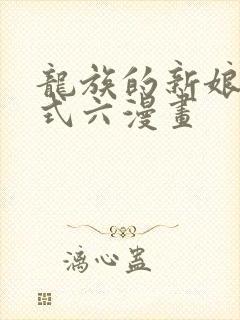 龍族的新娘
式六漫畫
漓心蠱